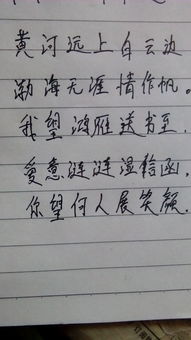 黄河远上白云边
渤海无涯情作帆.
我望鸿雁送书至.
爱意涟涟湿信函,
你望何人展笑颜.